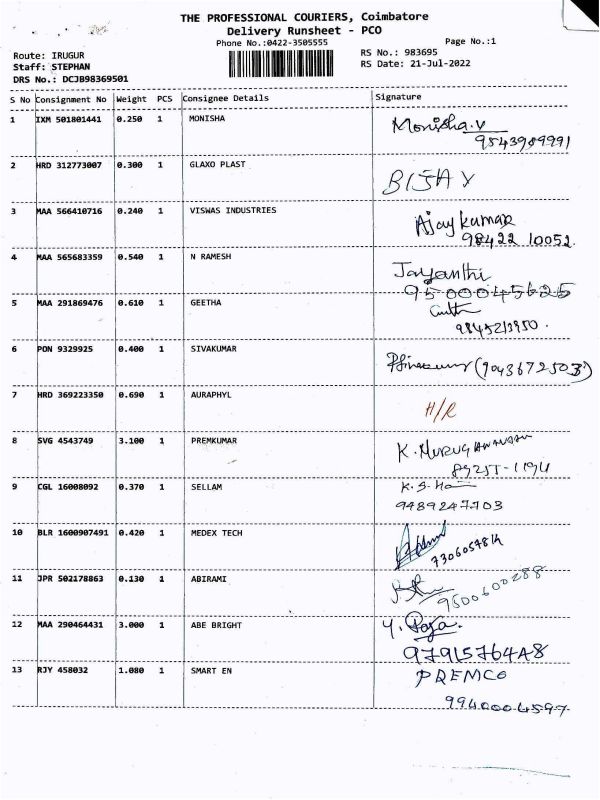 THE PROFESSIONAL COURIERS, Coimbatore
Delivery Runsheet - PCO
Phone No.:0422-3505555
Page No.:1
Route: IRUGUR
RS No.: 983695
Staff: STEPHAN
RS Date: 21-Jul-2022
DRS No.: DCJB98369501
S No Consignment No Weight PCS Consignee Details Signature
1 IXM 501801441 0.250 1 MONISHA Monisha.V
9543989991
2 HRD 312773007 0.300 1 GLAXO PLAST BIJAY
3 MAA 566410716 0.240 1 VISWAS INDUSTRIES Ajay kumar
98422 10052
4 MAA 565683359 0.540 1 N RAMESH Jayanthi
9500045625
5 MAA 291869476 0.610 1 GEETHA
6 PON 9329925 0.400 1 SIVAKUMAR (9043672503)
7 HRD 369223350 0.690 1 AURAPHYL H/R
8 SVG 4543749 3.100 1 PREMKUMAR K.
9 CGL 16008092 0.370 1 SELLAM K.S.
9489247703
10 BLR 1600907491 0.420 1 MEDEX TECH
11 JPR 502178863 0.130 1 ABIRAMI
9500600288
12 MAA 290464431 3.000 1 ABE BRIGHT Y.
13 RJY 458032 1.080 1 SMART EN PREMCO
9940004597